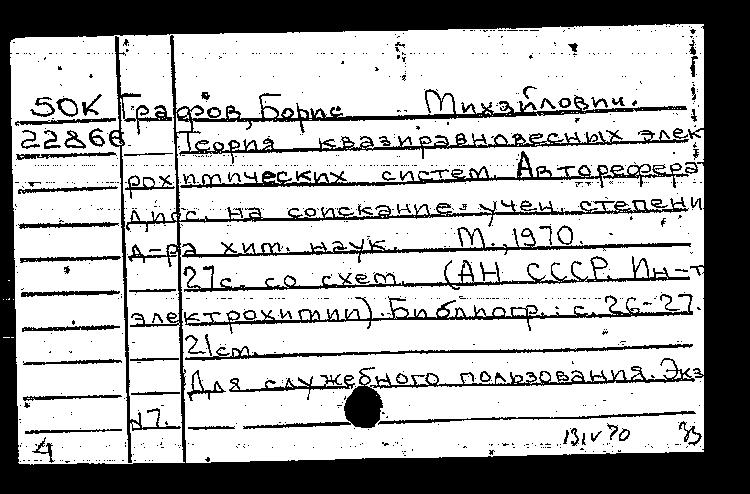 50К Графов, Борис Михайлович.
22866 Теория квазиравновесных элек
рохимических систем. Автореферат
дисс. на соискание учен. степени
д-ра хим. наук. М., 1970.
27с. со схем. (АН СССР. Ин-т
электрохимии). Библиогр.: с. 26-27.
21см.
Для служебного пользования. Экз
N7.
4 13 IV 70